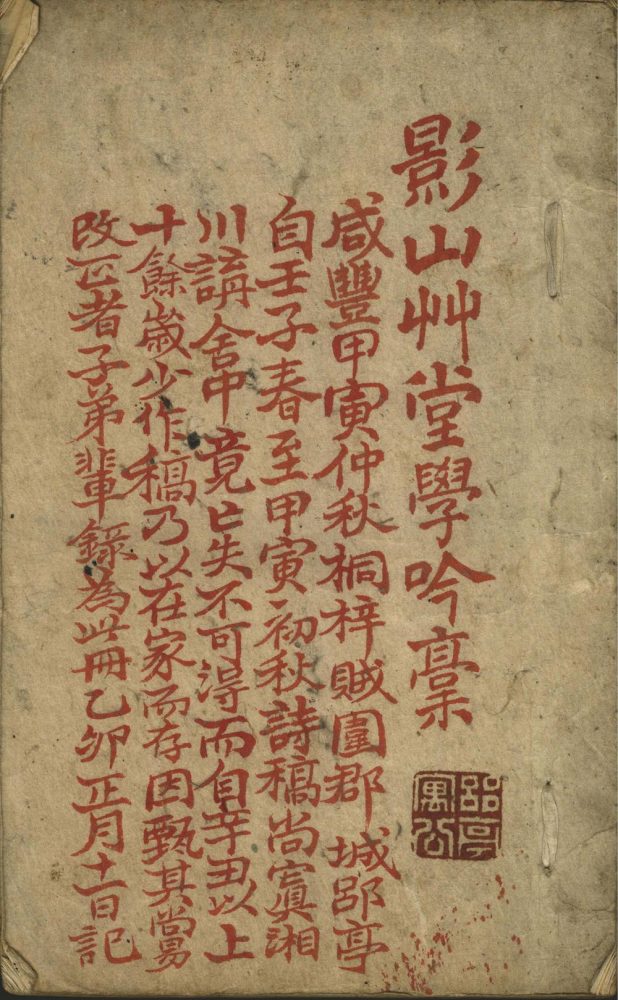 影山艸堂學吟稾
咸豐甲寅仲秋桐梓賊圍郡城郘亭
自壬子春至甲寅初秋詩稿尚寘湘
川講舍中竟亡失不可得而自辛丑以上
十餘歲少作稿乃以在家而存因甄其當易
改正者子弟輩錄為此冊乙卯正月十一日記
郘亭寓公